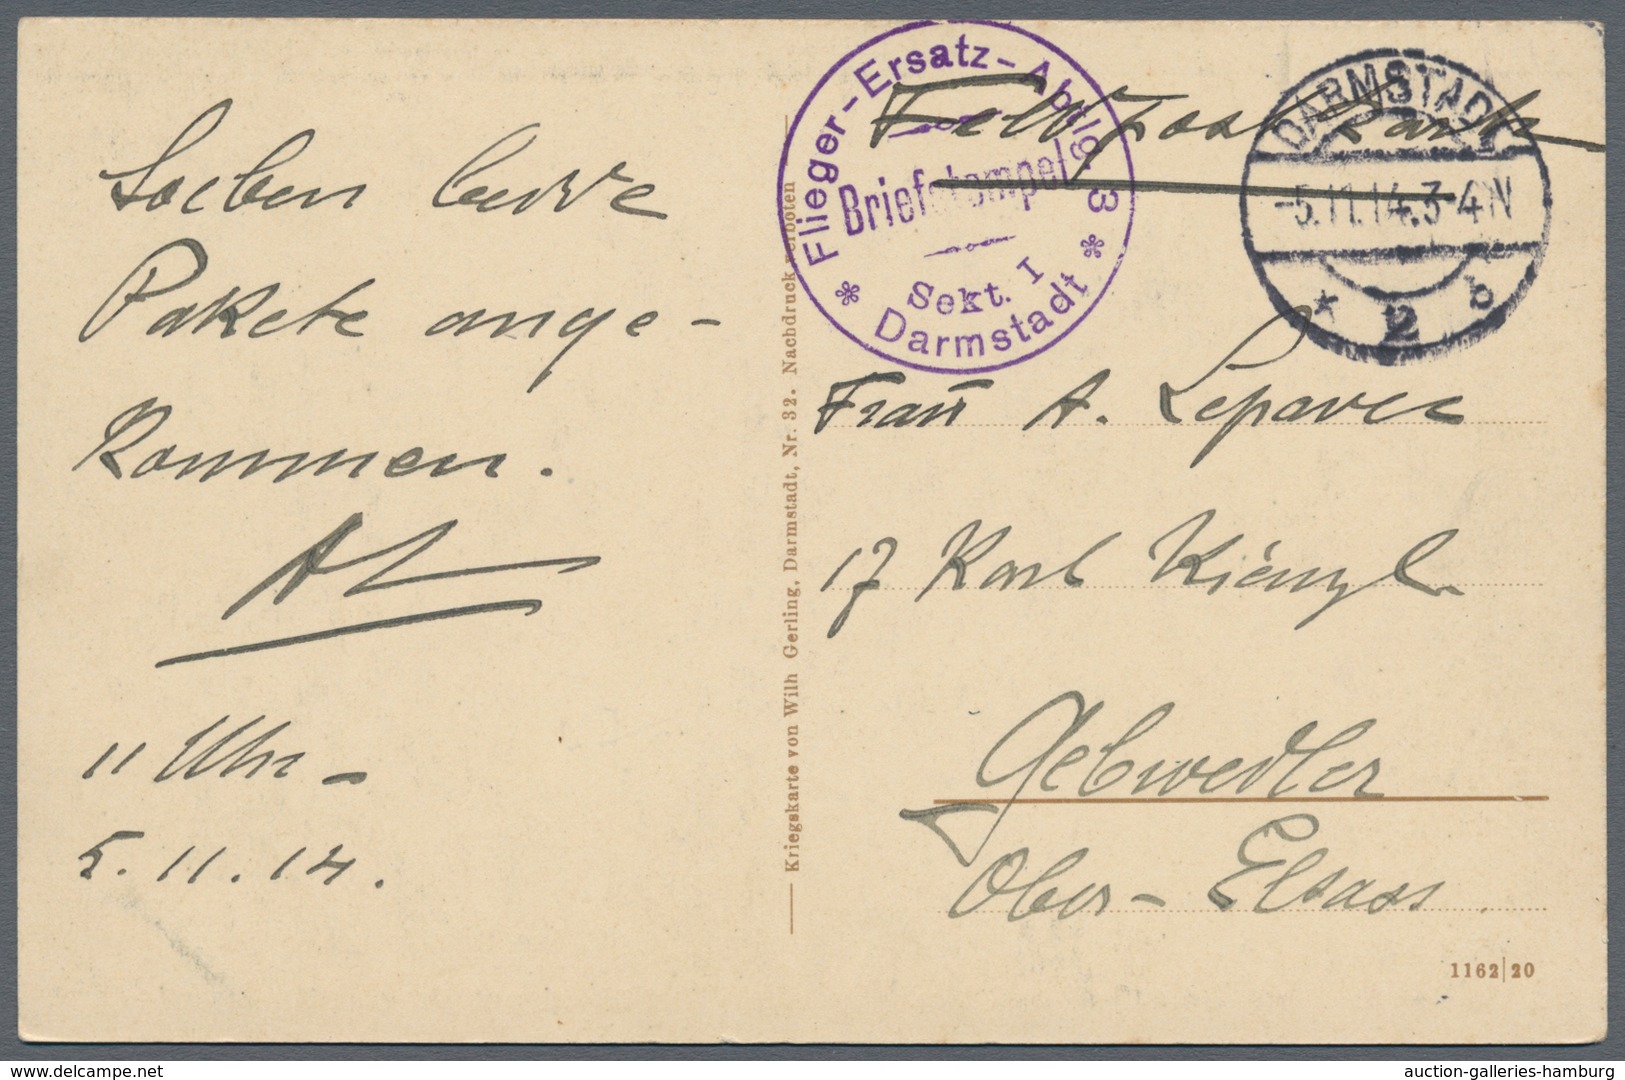 Soeben beide
Pakete ange-
kommen.
AL
11 Uhr –
5.11.14.
Kriegskarte von Wilh Gerling, Darmstadt, Nr. 32. Nachdruck verboten
Flieger-Ersatz-Abtlg. 3
Briefstempel
Sekt. I
* Darmstadt *
Feldpostkarte
DARMSTADT
-5.11.14.3-4N
* 2 b
Frau A. Leparer
17 Karl Kienzl.
Gebweiler
Ober-Elsass.
1162|20
www.delcampe.net
auction-galleries-hamburg